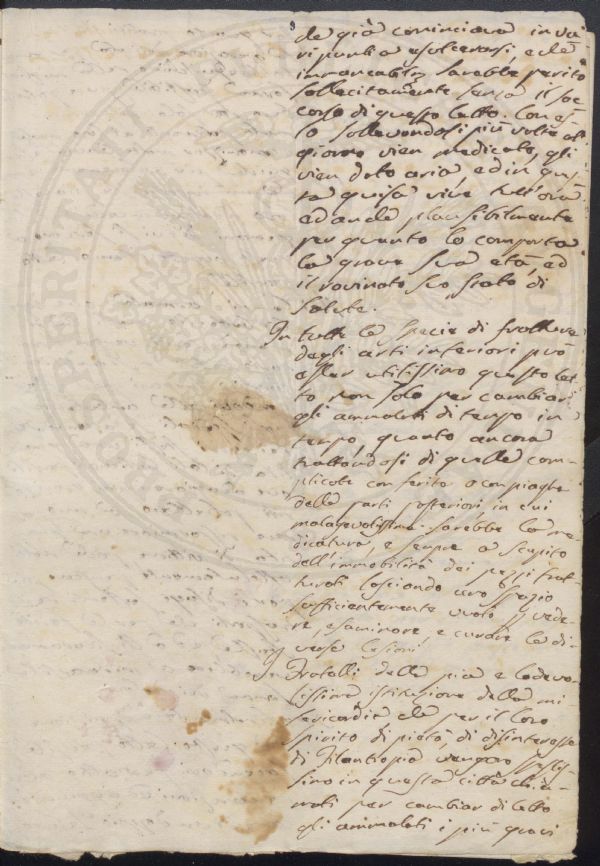 9
de già cominciava in va-
ri punti a esulcerarsi, e che
immancabilm. sarebbe perito
sollecitamente senza il soc-
corso di questo letto. Con es-
so sollevandosi più volte al
giorno vien medicato, gli
vien dato aria, ed in que-
sta guisa vive tutt'ora
ed anche plausibilmente
per quanto lo comporta
la grave sua età, ed
il rovinato suo stato di
salute.
In tutte le specie di fratture
degli arti inferiori può
esser utilissimo questo let-
to non solo per cambiar
gli ammalati di tempo in
tempo, quanto ancora
trattandosi di quelle com-
plicate con ferite o con piaghe
delle parti posteriori, in cui
malagevolissima sarebbe la me-
dicatura, e sempre a scapito
dell'immobilità dei pezzi frat-
turati lasciando uno spazio
sufficientemente vuoto p vede-
re, esaminare, e curare le di-
verse lesioni.
I Fratelli della pia e lodevo-
lissima istituzione della mi-
sericordia che per il loro
spirito di pietà, di disinteresse
di Filantropia vengono
in questa città chia-
mati per cambiar di letto
gli ammalati i più gravi
PROSPERITATI